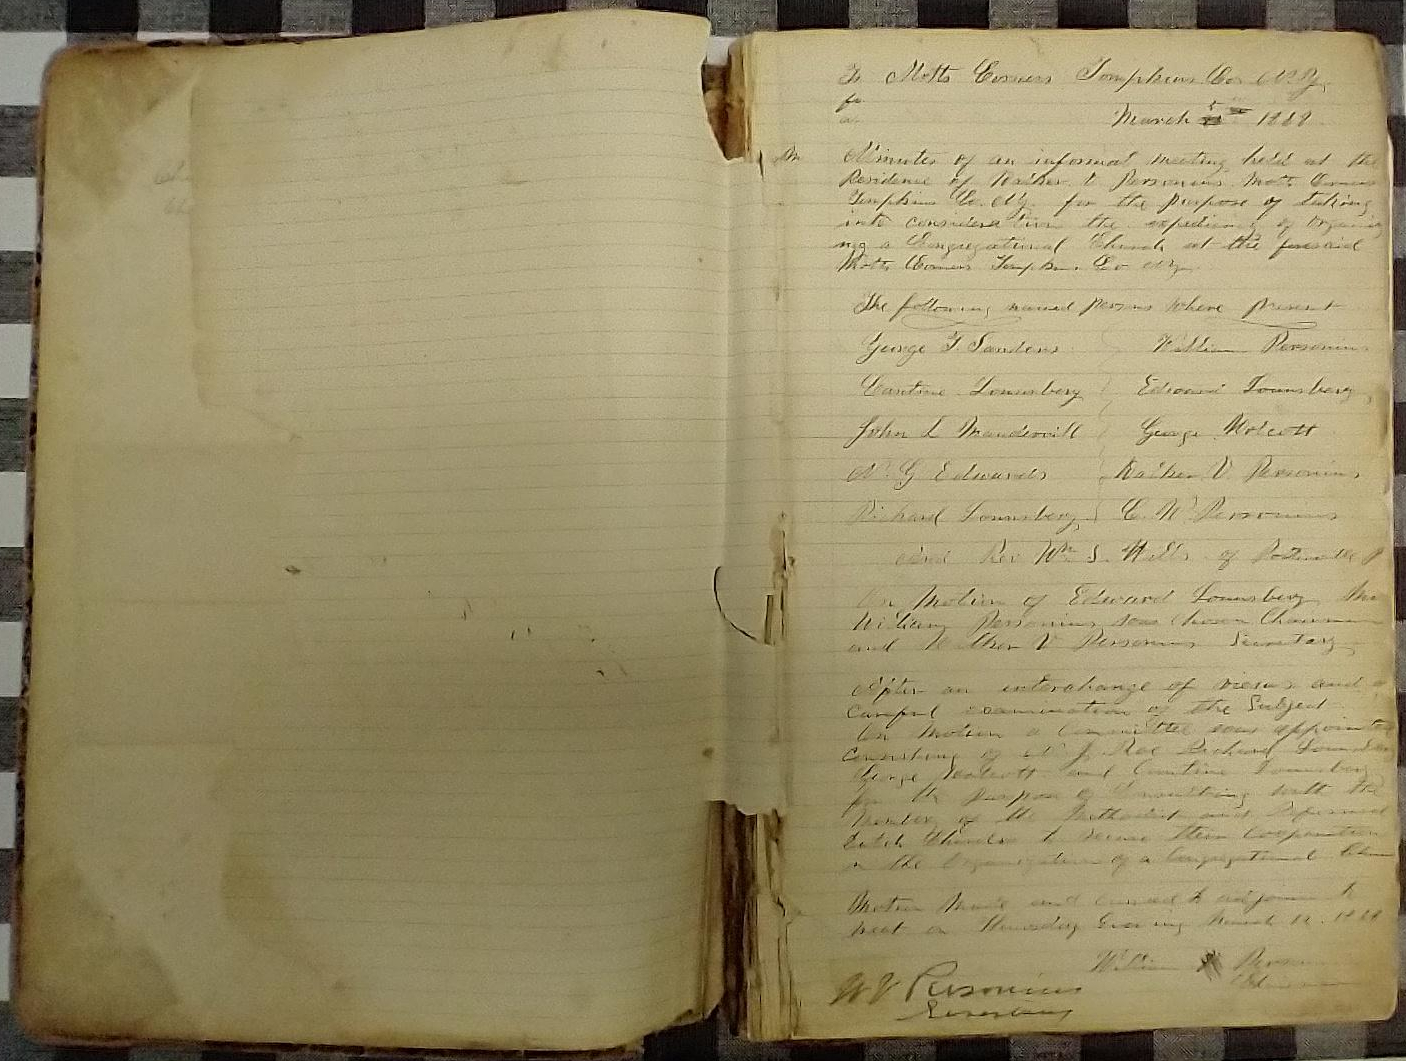 Motts Corners Tompkins Co N.Y.
March 5 1869
Minutes of an informal meeting held at the
Residence of Walker V Personius Motts Corners
Tompkins Co. N.Y. for the purpose of taking
into consideration the expediency of Organizi
ng a Congregational Church at the foresaid
Motts Corners Tompkins Co N.Y.
The following named persons where present
George T. Sanders William Personius
Cantine Lounsbery Edward Lounsbery
John L Mandervill George Wolcott
N. G Edwards Walker V Personius
Richard Lounsbery C. W Personius
and Rev Wm S. Hills of
On Motion of Edward Lounsbery Mr
William Personius was chosen Chairman
and Walker V Personius Secretary
After an interchange of views and a
careful examination of the Subject
On Motion a Committee was appointed
consisting of J. Roe Richard Lounsbery
George Wolcott and Cantine Lounsbery
for the purpose of Consulting with the
Members of the Methodist and Reformed
Dutch Churches to secure their Cooperation
in the Organization of a Congregational
Motion Made and carried to adjourn to
meet on Thursday Evening March 1869
William Personius
W V Personius
Secretary